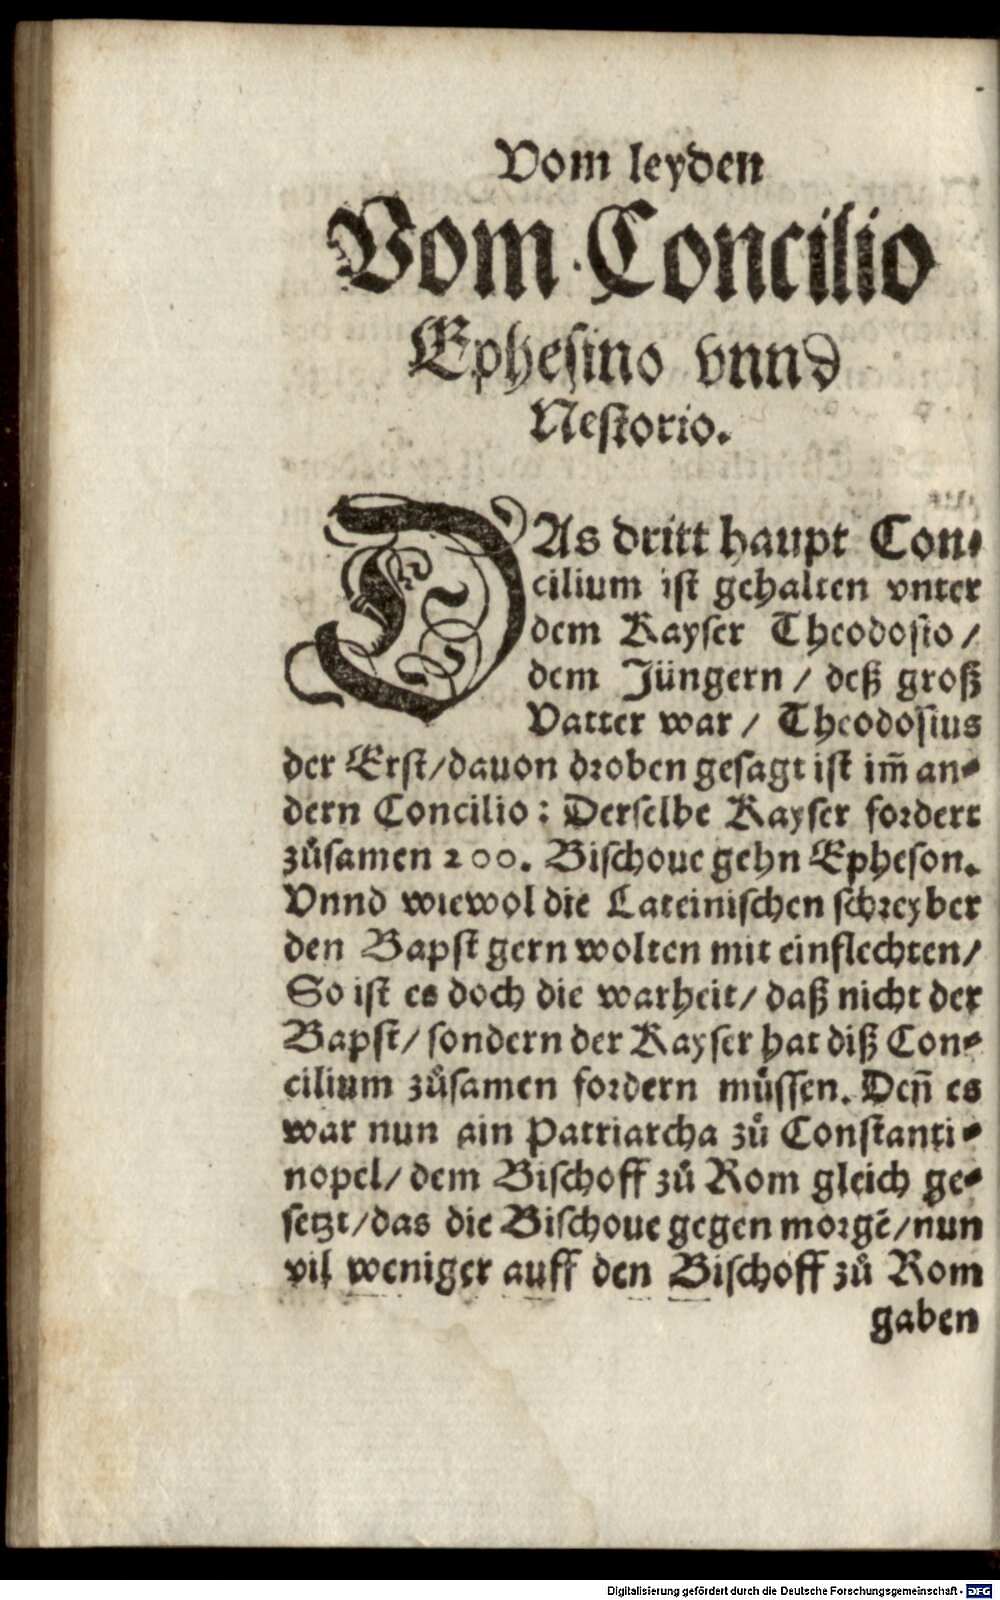 Vom leyden
Vom Concilio
Ephesino vnnd
Nestorio.
DAs dritt haupt Con-
cilium ist gehalten vnter
dem Kayser Theodosio /
dem Jüngern / deß groß
Vatter war / Theodosius
der Erst/dauon droben gesagt ist im̃ an-
dern Concilio : Derselbe Kayser fordert
zůsamen 200. Bischoue gehn Epheson.
Vnnd wiewol die Lateinischen schreyber
den Bapst gern wolten mit einflechten/
So ist es doch die warheit/ daß nicht der
Bapst/ sondern der Kayser hat diß Con-
cilium zůsamen fordern můssen. Deñ es
war nun ain Patriarcha zů Constanti-
nopel/ dem Bischoff zů Rom gleich ge-
setzt/das die Bischoue gegen morgẽ/nun
vil weniger auff den Bischoff zů Rom
gaben
Digitalisierung gefördert durch die Deutsche Forschungsgemeinschaft - DFG